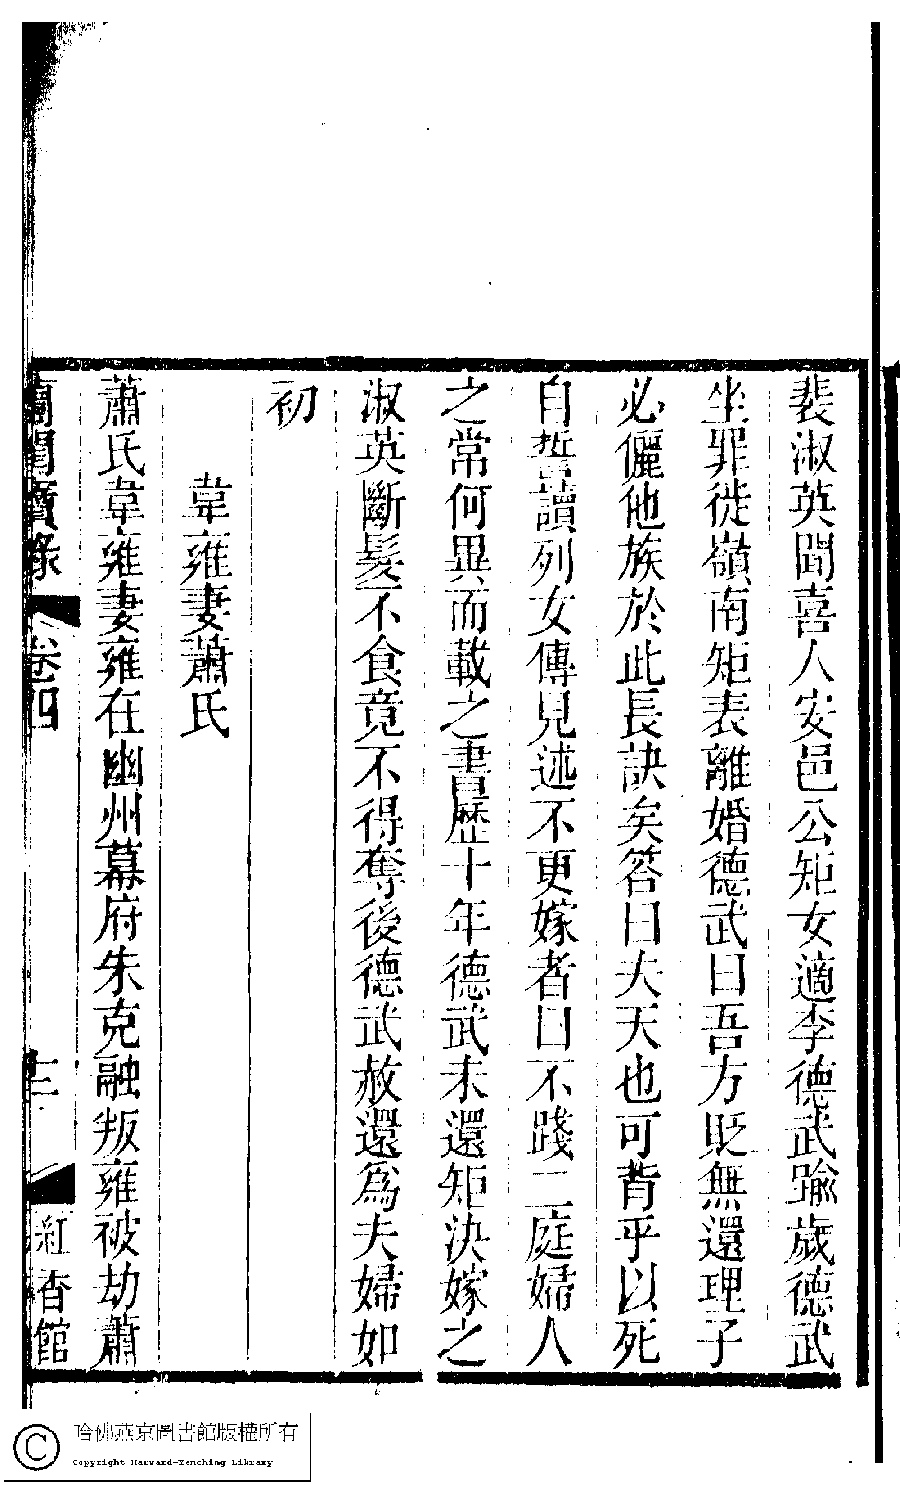 裴淑英聞喜人安邑公矩女適李德武踰歲德武
坐罪徙嶺南矩表離婚德武曰吾方貶無還理子
必儷他族於此長訣矣答曰夫天也可背乎以死
自誓讀列女傳見述不更嫁者曰不踐二庭婦人
之常何異而載之書歷十年德武未還矩決嫁之
淑英斷髮不食竟不得奪後德武赦還爲夫婦如
初
韋雍妻蕭氏
蕭氏韋雍妻雍在幽州幕府朱克融叛雍被劫蕭
蘭閨寶錄 卷四 紅香館
哈佛燕京圖書館版權所有
Copyright Harvard-Yenching Library